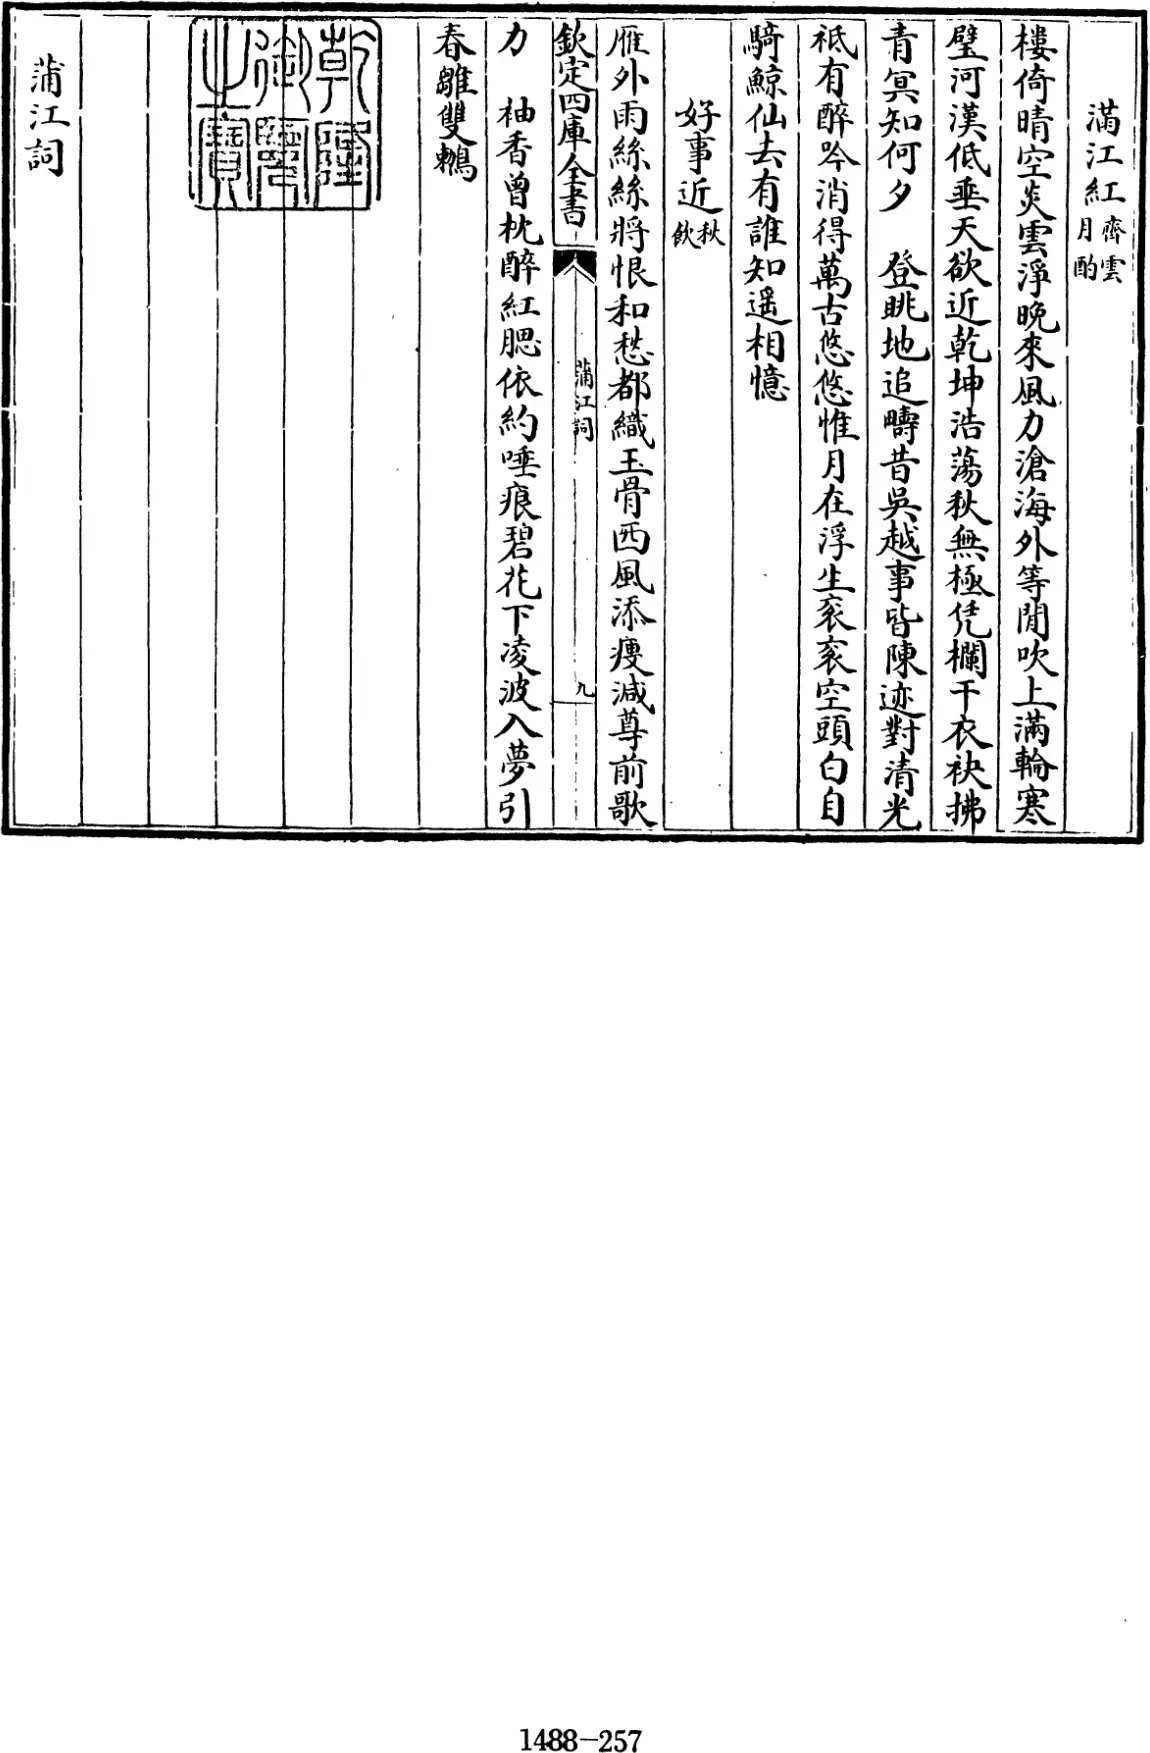 滿江紅齊雲月酌
樓倚晴空炎雲淨晚來風力滄海外等閒吹上滿輪寒
璧河漢低垂天欲近乾坤浩蕩秋無極凭欄干衣袂拂
青冥知何夕　登眺地追疇昔吳越事皆陳迹對清光
祇有醉吟消得萬古悠悠惟月在浮生衮衮空頭白自
騎鯨仙去有誰知遥相憶
好事近秋飲
雁外雨絲絲將恨和愁都織玉骨西風添瘦減尊前歌
欽定四庫全書
蒲江詞
九
力　袖香曾枕醉紅腮依約唾痕碧花下凌波入夢引
春雛雙鶒
乾隆御覽之寶
蒲江詞
1488-257